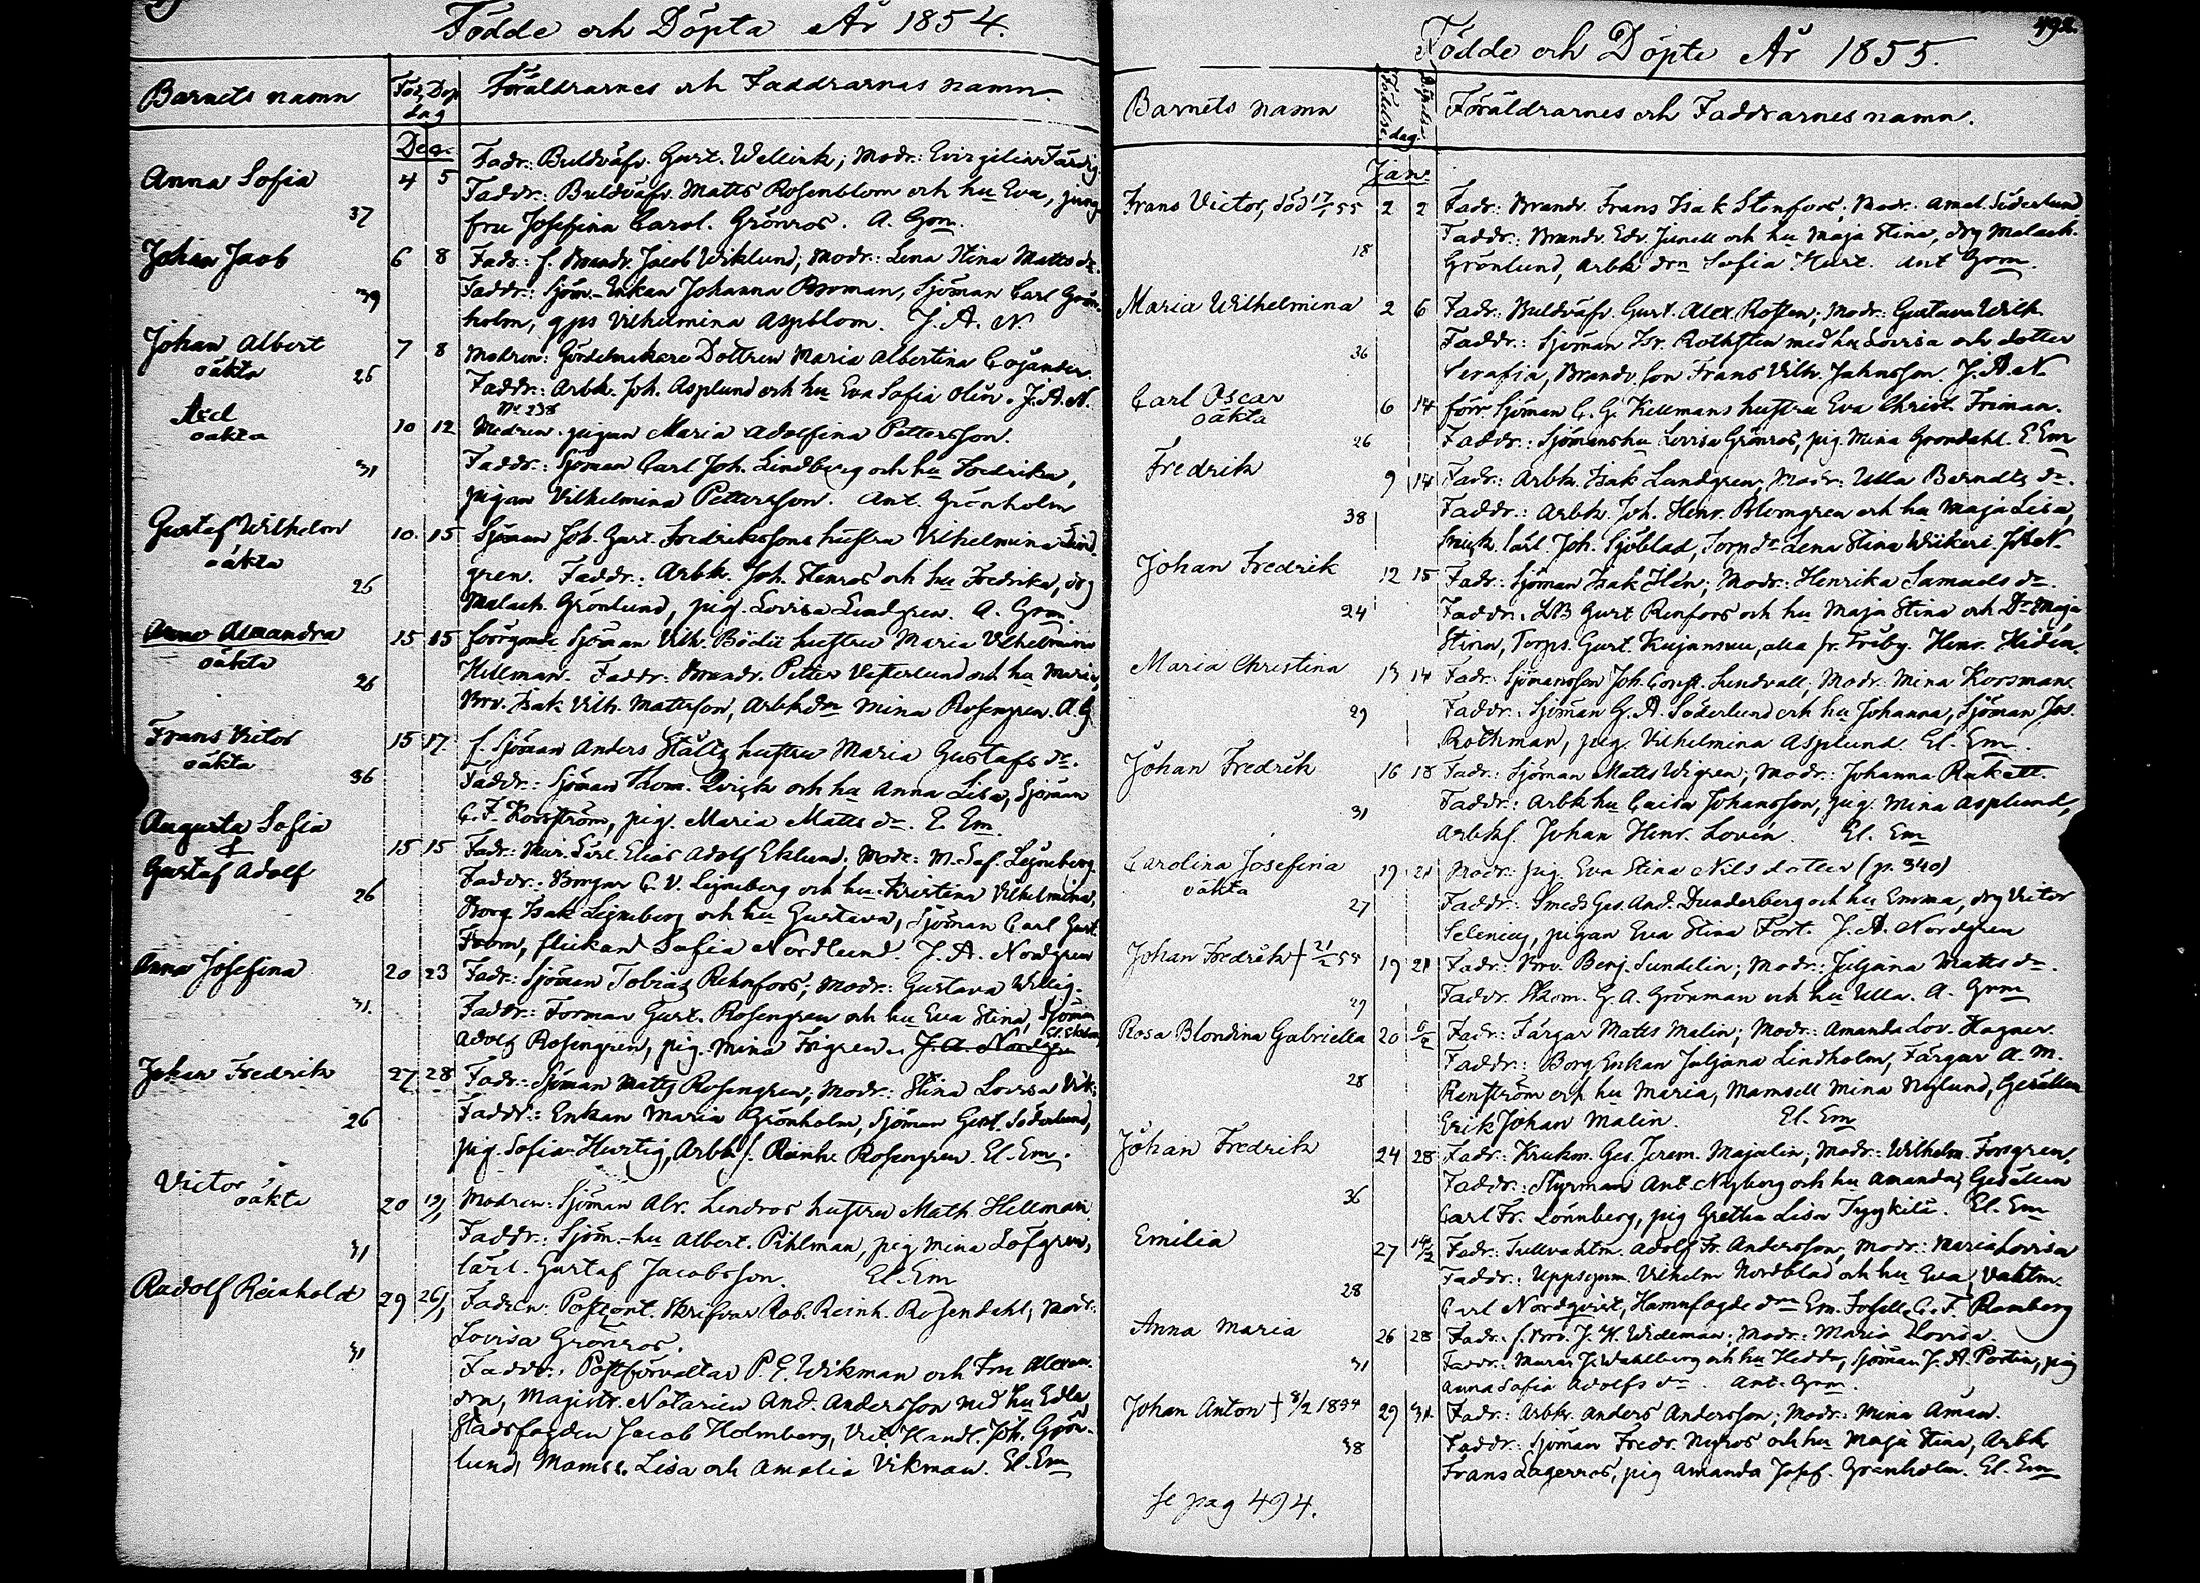 Födde och Döpta År 1854.
Barnets namn
Föd. Döp.
dag
Föräldrarnes och Faddrarnas namn.
Dec.
Anna Sofia 4 5 Fadr: Buldväfv. Gust. Wellink; Modr:
Faddr: Buldväfv. Matts Rosenblom och hu Eva, jung-
37 fru Josefina Carol. Grönros. A. Grm.
Johan Jacob 6 8 Fadr: f. Brandv. Jacob Wiklund; Modr: Lena Stina Matts dr.
39 Faddr: Sjöm.-Enkan Johanna Broman, Sjöman Carl Grön-
holm, gps Vilhelmina Aspblom. J. A. N.
Johan Albert 7 8 Modren: Gördelmakare Dottren Maria Albertina Cojander.
oäkta 26 Faddr: Arbk. Joh. Asplund och hu Eva Sofia Olin. J. A. N.
No 238
Axel 10 12 Modren pigan Maria Adolfina Pettersson.
oäkta
31 Faddr: Sjöman Carl Joh. Lindberg och hu Fredrika,
pigan Vilhelmina Pettersson. Ant. Grönholm
Gustaf Wilhelm 10 15 Sjöman Joh. Gust. Fredrikssons hustru Vilhelmina Lind-
oäkta gren. Faddr: Arbk. Joh. Stenros och hu Fredrika, drg
26 Malach. Grönlund, pig. Lovisa Lindgren. A. Grm.
Anna Alexandra 15 15 Sjöman Vilh. hustru Maria Vilhelmina
oäkta
26 Hellman. Faddr: Brandv. Petter Vesterlund och hu Maria,
Brv. Isak Vilh. Mattsson, Arbk dr Mina Rosengren. A. G.
Frans Victor 15 17 f. Sjöman Anders Ståltz hustru Maria Gustafs dr.
oäkta
36 Faddr: Sjöman Thom. Qvick och hu Anna Lisa, Sjöman
C. F. Rooström, pig. Maria Matts dr. E. Em.
Augusta Sofia
&
Gustaf Adolf 15 15 Fadr: Mur. Lärl. Elias Adolf Eklund; Modr: M. Saf. Lejonberg.
26 Faddr: Borgar C. V. Lejonberg och hu Kristina Vilhelmina,
Borg. Isak Lejonberg och hu Gustava, Sjöman Carl Gust.
From, flickan Sofia Nordlund. J. A. Nordgren
Anna Josefina 20 23 Fadr: Sjöman Tobias Rehnfors; Modr: Gustava Wellig.
31. Faddr: Forman Gust. Rosengren och hu Eva Stina, Sjöman
Adolf Rosengren, pig. Mina Frigren. J. A. Nordgren
Johan Fredrik 27 28 Fadr: Sjöman Matts Rosengren; Modr: Stina Lovisa Vik:
26 Faddr: Enkan Maria Grönholm, Sjöman Gust. Söderlund,
pig. Sofia Hurtig, Arbk f. Reinh. Rosengren. El. Em.
Victor 20 12/1 Modren: Sjöman Alr. Lindros hustru Math. Hellman
oäkta
31 Faddr: Sjöm.-hu Albert. Pihlman, pig Mina Löfgren,
lärl. Gustaf Jacobsson. El. Em
Rudolf Reinhold 29 26/1 Fadren: Postcont. Skrifvar Rob. Reinh. Rosendahl; Modr:
31 Lovisa Grönros.
Faddr: Postförvaltar P. E. Wikman och Fru Alexan-
dra, Magistr. Notarien And. Andersson med hu Edla,
Stadsfogden Jacob Holmberg, Vict. Handl. Joh. Grön-
lund, Mamss. Lisa och Amalia Vikman. El. Em
492.
Födde och Döpte År 1855.
Barnets namn
Födelse- Döpelse-
dag.
Föräldrarnes och Faddrarnes namn.
Jan.
Frans Victor, död 17/1 55 2 2 Fadr: Brandv. Frans Isak Stenfors; Modr: Amal. Söderlund
18 Faddr: Brandv. Edv. Junell och hu Maja Stina, drg Malach.
Grönlund, Arbk drn Sofia Hurt. Ant Grm.
Maria Wilhelmina 2 6 Fadr: Buldväfv. Gust. Alex. Rosten; Modr: Gustava Wilh.
36 Faddr: Sjöman Hr. Rothsten med hu Lovisa och dotter
Serafia, Brandv. son Frans Vilh. Johnsson. J. A. N.
Carl Oscar 6 14 förr. Sjöman C. G. Kellmans hustru Eva Christ. Friman.
oäkta
26 Faddr: Sjömanshu Lovisa Grönros, pig. Mina Grondahl. E. Em
Fredrik 9 14 Fadr: Arbk. Isak Lundgren; Modr: Ulla Berndts dr.
38 Faddr: Arbk. Joh. Henr. Blomgren och hu Maja Lisa,
Snick. lärl. Joh. Sjöblad, Torp dr Lena Stina Wikeri. J. A. N.
Johan Fredrik 12 15 Fadr: Sjöman Isak Hén; Modr: Henrika Samuels dr.
24 Faddr: LB Gust Renfors och hu Maja Stina och Dr Maja
Stina, Torps. Gust. Kujansuu, alla fr. Friby. Henr. Hidén.
Maria Christina 13 14 Fadr: Sjömansson Joh. Const. Lundvall; Modr: Mina Korsman.
29 Faddr: Sjöman G. A. Söderlund och hu Johanna, Sjöman Jos.
Rothman, pig. Vilhelmina Asplund. El. Em.
Johan Fredrik 16 18 Fadr: Sjöman Matts Wigren; Modr: Johanna Rakett.
31 Faddr: Arbk hu Caisa Johansson, pig. Mina Asplund,
Arbkf. Johan Henr. Lovén. El. Em
Carolina Josefina 19 21 Modr: pig. Eva Stina Nils dotter (p. 340)
oäkta
27 Faddr: Smeds Ges. And. Dunderberg och hu Emma, drg Victor
Selenius, pigan Eva Stina Fort. J. A. Nordgren
Johan Fredrik † 21/2 55 19 21 Fadr: Brv. Benj. Sundelin; Modr: Juljana Matts dr.
29 Faddr. Skom. G. A. Grönman och hu Ulla. A. Grm
Rosa Blondina Gabriella 20 6/2 Fadr: Färgar Matts Malin; Modr: Amanda Lov. Hagner.
28 Faddr: Borg Enkan Juljana Lindholm, Färgar A. M.
Renström och hu Maria, Mamsell Mina Nylund, Gesällen
Erik Johan Malin. El. Em
Johan Fredrik 24 28 Fadr: Krukm. Ges. Jerem. Majalin; Modr: Wilhelm. Forsgren.
36 Faddr: Styrman Ant. Nyberg och hu Amanda, Gesällen
Carl Fr. Lönnberg, pig Gretha Lisa Tyykilä. El. Em
Emilia 27 14/2 Fadr: Tullvaktm. Adolf Fr. Andersson; Modr: Maria Lovisa
28 Faddr: Uppsynm. Vilhelm Nordblad och hu Eva, Vaktm.
Carl Nordqvist, Hamnfogde drn Em. C. F. Ramberg
Anna Maria 26 28 Fadr: f. Brv. J. H. Wideman; Modr: Maria Lovisa.
31 Faddr: Murar J. Wahlberg och hu Hedda, Sjöman J. A. Portin, pig
Anna Sofia Adolfs dr. Ant. Grm.
Johan Anton † 8/2 1854 29 31 Fadr: Arbk. Anders Andersson; Modr: Mina Åman.
38 Faddr: Sjöman Fredr. Nyros och hu Maja Stina, Arbk
Frans Lagerros, pig Amanda Josef. Grönholm. El. Em
se pag 494.